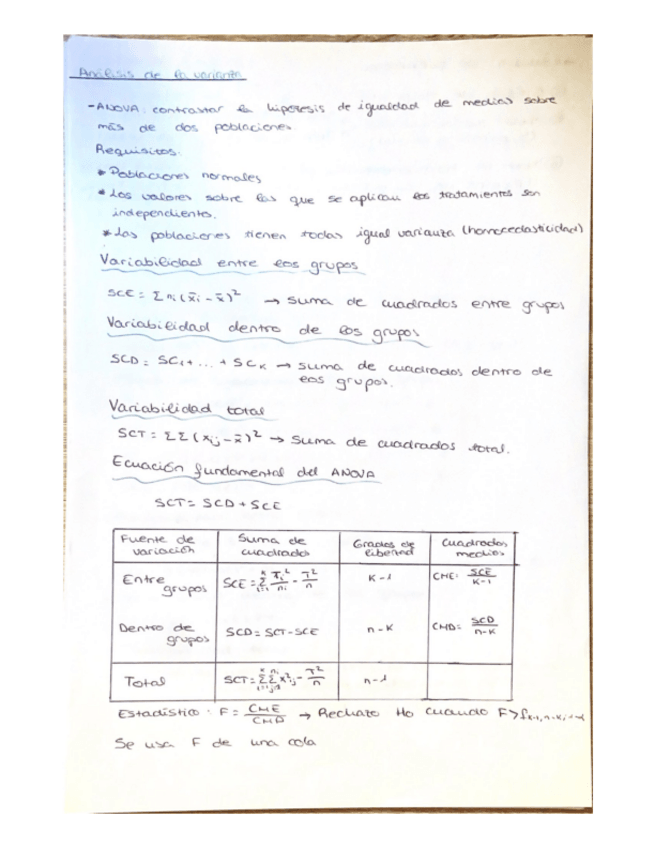 Análisis de la varianza
-ANOVA: contrastar la hipótesis de igualdad de medias sobre
más de dos poblaciones
Requisitos:
* Poblaciones normales
* Los valores sobre las que se aplican los tratamientos son
independiente.
* Las poblaciones tienen todas igual varianza (homocedasticidad)
Variabilidad entre los grupos
SCE = Σ ni (x̄i - x̄)² → Suma de cuadrados entre grupos
Variabilidad dentro de los grupos
SCD = SC1 + ... + SCK → suma de cuadrados dentro de
los grupos.
Variabilidad total
SCT = ΣΣ (xij - x̄)² → Suma de cuadrados total.
Ecuación fundamental del ANOVA
SCT = SCD + SCE
Fuente de variación | Suma de cuadrado | Grados de libertad | Cuadrados medios
Entre grupos | SCE = Σ Ti²/ni - T²/n | K-1 | CME = SCE/K-1
Dentro de grupos | SCD = SCT - SCE | n-K | CMD = SCD/n-K
Total | SCT = ΣΣ x²ij - T²/n | n-1
Estadístico: F = CME/CMD → Rechazo Ho cuando F > fK-1, n-K; 1-α
Se usa F de una cola